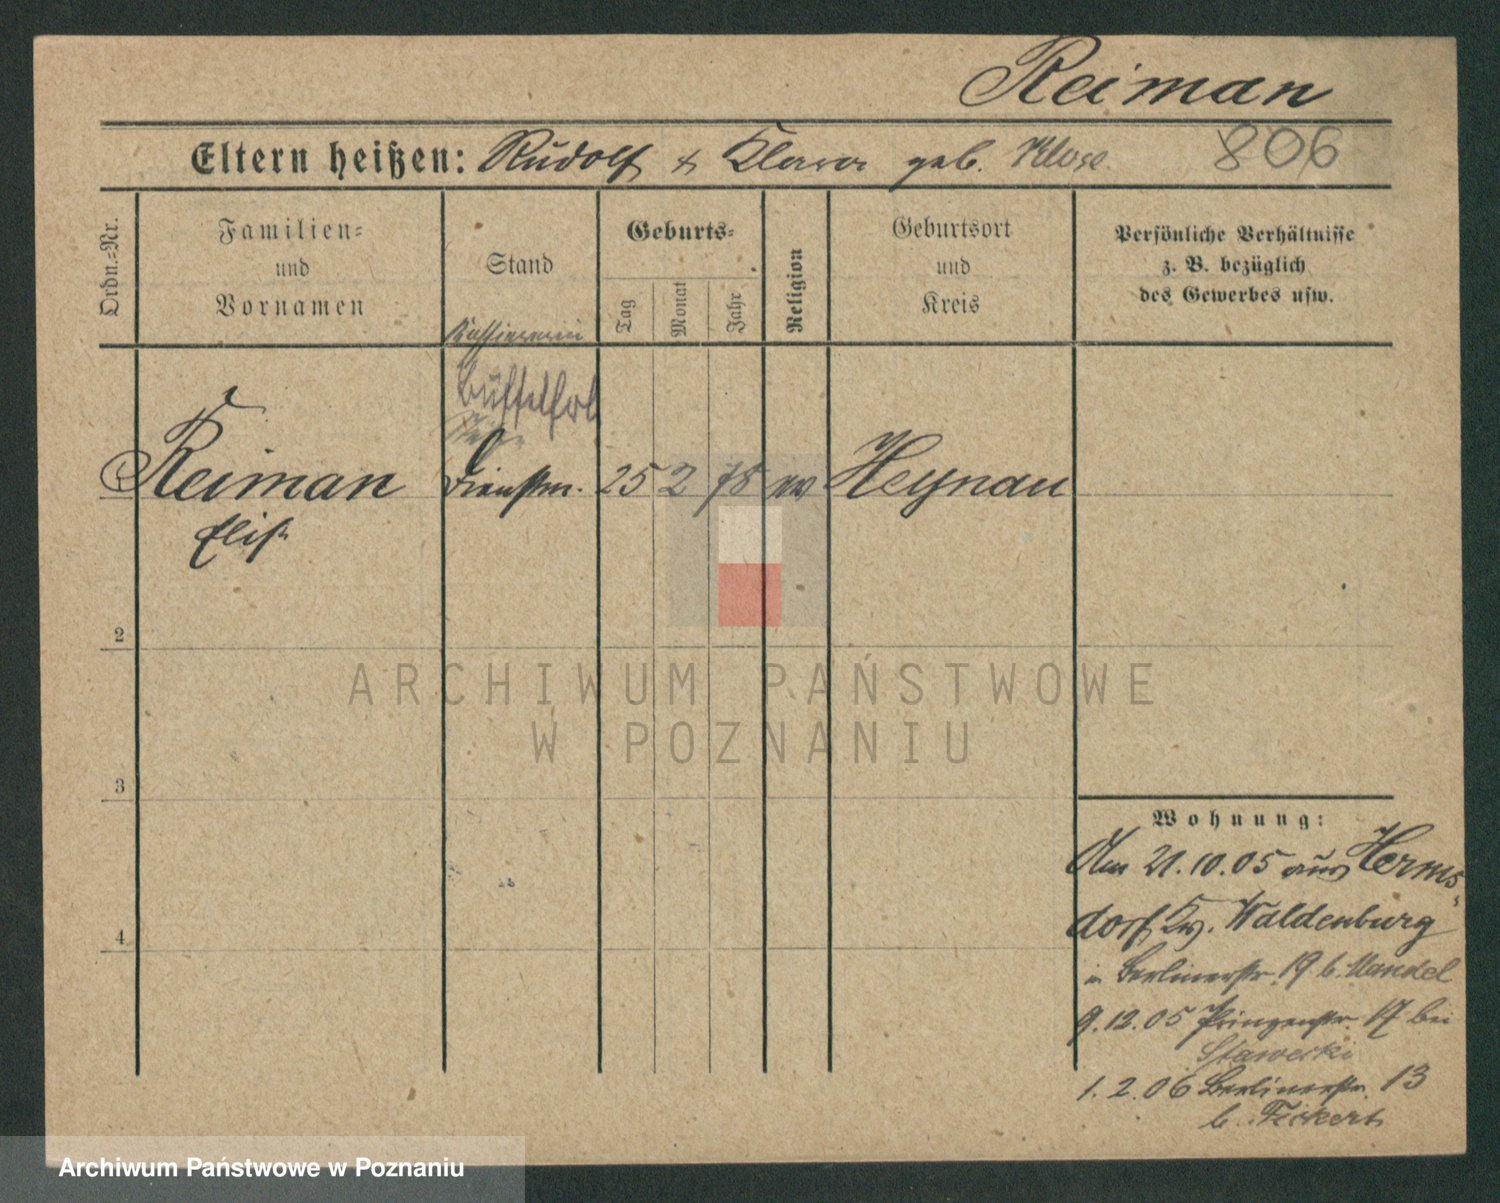 Reiman
Eltern heißen: Rudolf & Klara geb. Klose
806
Ordn.-Nr.
Familien-
und
Vornamen
Stand
Geburts-
Tag
Monat
Jahr
Religion
Geburtsort
und
Kreis
Persönliche Verhältnisse
z. B. bezüglich
des Gewerbes usw.
Kassiererin
Buffetfrl
Reiman Dienstm. 25 2 78 ev Heynau
Elis.
2
3
4
Wohnung:
Am 21.10.05 aus Herms-
dorf Kr. Waldenburg
in Berlinerstr. 19 b. Mandel
9.12.05 Prinzenstr. 17 bei
Stawecki
1.2.06 Berlinerstr. 13
b. Fickert
ARCHIWUM PAŃSTWOWE
W POZNANIU
Archiwum Państwowe w Poznaniu